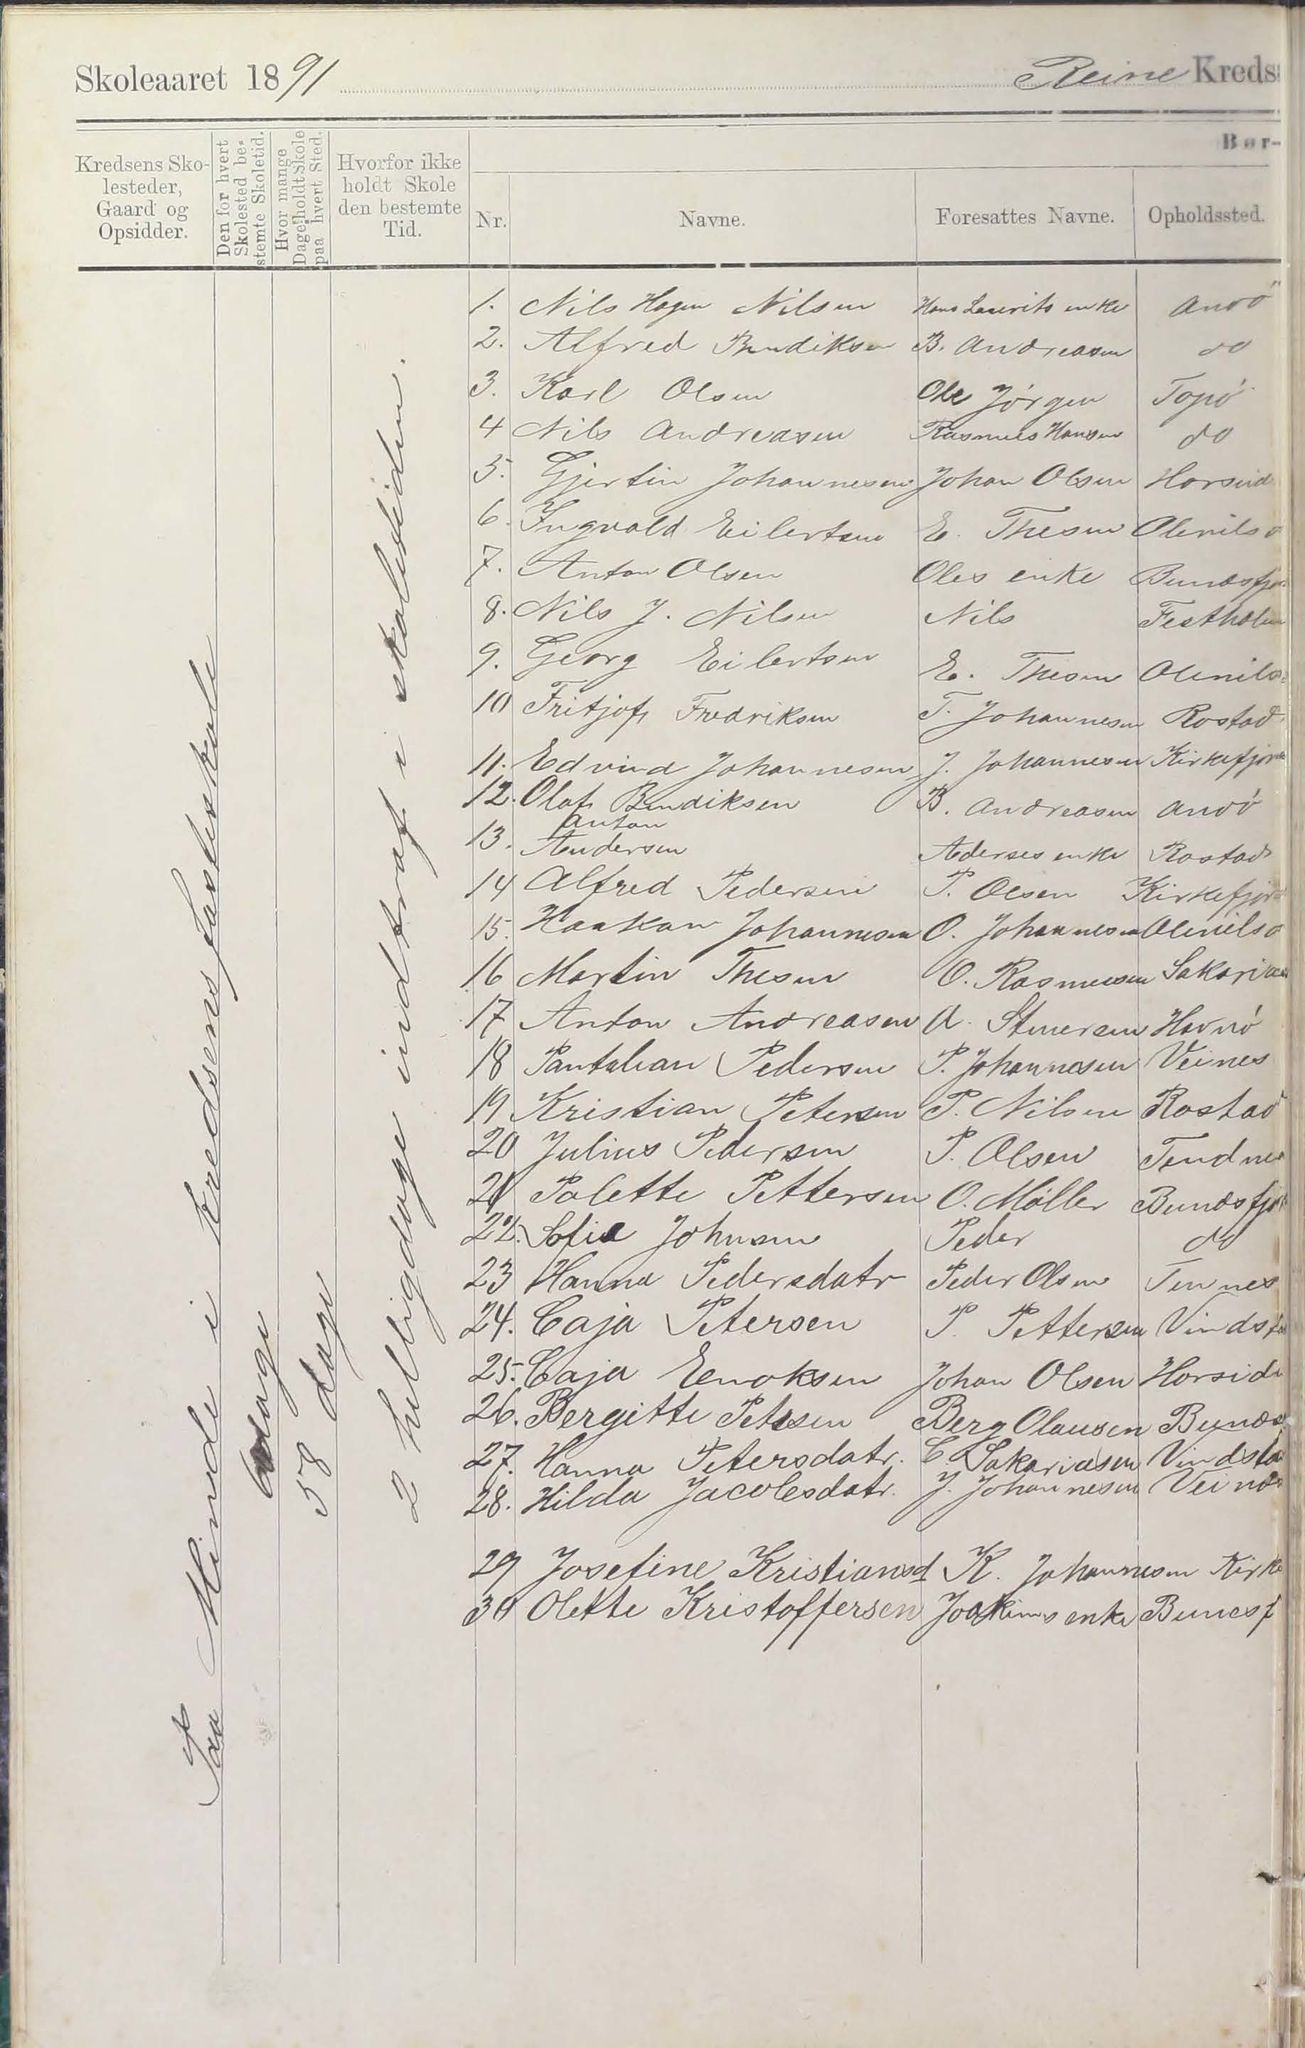 Skoleaaret 1891 Reine Kreds
Bør-
Kredsens Sko-
lesteder,
Gaard og
Opsidder.
Den for hvert
Skolested be-
stemte Skoletid.
Hvor mange
Dage holdt Skole
paa hvert Sted.
Hvorfor ikke
holdt Skole
den bestemte
Tid.
Nr.
Navne.
Foresattes Navne.
Opholdssted.
Paa Minde i kredsens fasteskole
dage
58 dage
2 helligdage indtraf i skoletiden.
1. Nils Hagen Nilsen Hans Laurits enke Andö
2. Alfred Bendiksen B. Andreasen do
3. Karl Olsen Ole Jörgen Topö
4 Nils Andreasen Rasmus Hansen do
5. Gjertin Johannesen Johan Olsen Horseid
6. Ingvald Eilertsen E. Thesen Olenilsö
7. Anton Olsen Oles enke Bundsfjo
8. Nils J. Nilsen Nils Festhælen
9. Georg Eilertsen E. Thesen Olenils
10 Fritjof Fredriksen F. Johannesen Rostad
11. Edvind Johannesen J. Johannesen Kirkefjor
12. Olaf Bendiksen B. Andreasen Andö
13. Anton
Andersen Aderses enke Rostad
14 Alfred Pedersen P. Olsen Kirkefjor
15. Haakon Johannesen O. Johannesen Olenilsö
16 Martin Thesen O. Rasmusen Sakarias
17 Anton Andreasen A. Stenersen Havnö
18 Pantalian Pedersen P. Johannesen Veines
19 Kristian Petersen P. Nilsen Rostad
20 Julius Pedersen P. Olsen Tendnes
21 Palette Pettersen O. Möller Bundsfjo
22. Sofie Johnsen Peder do
23 Hanna Pedersdatr Peder Olsen Tennes
24. Caja Petersen P. Pettersen Vindst
25. Caja Enoksen Johan Olsen Horseid
26. Bergitte Petersen Berg Olausen Bunds
27. Hanna Petersdatr. C. Sakariasen Vindsta
28. Hilda Jacobsdatr. J. Johannesen Veines
29 Josefine Kristiansd K. Johannesen Kirke
30 Olette Kristoffersen Joakims enke Bunesf